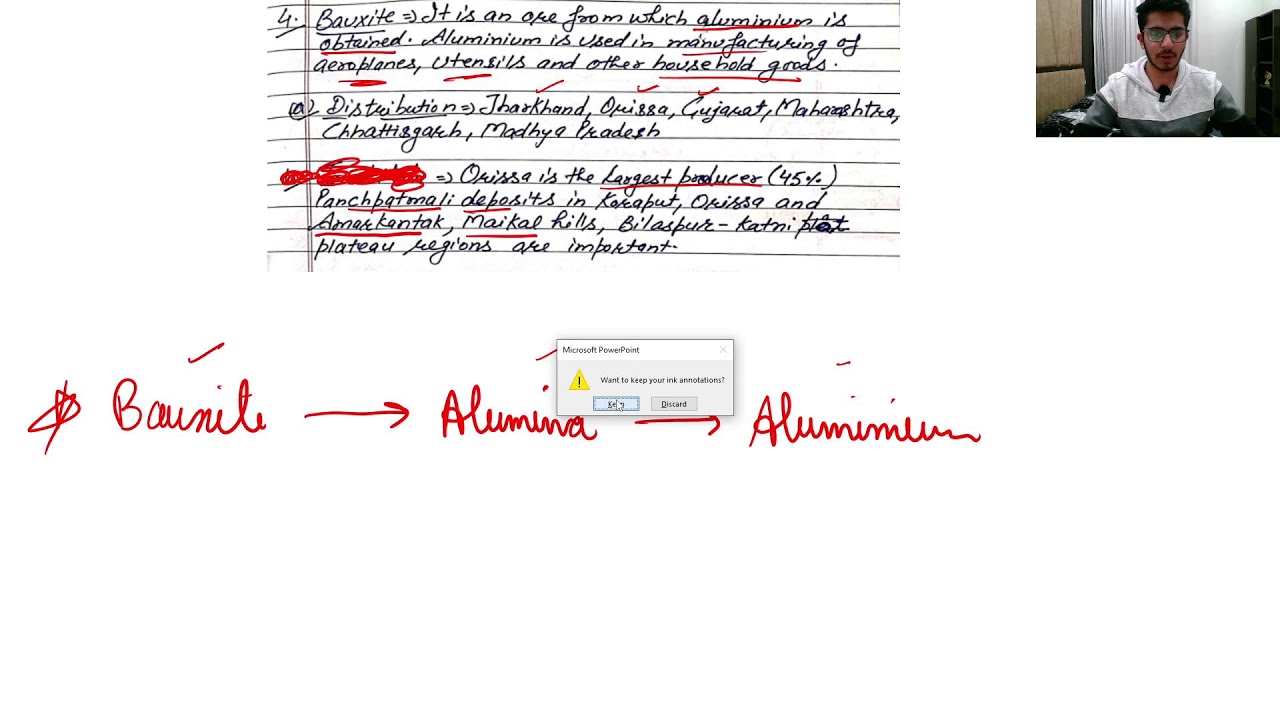 4. Bauxite ⇒ It is an ore from which aluminium is
obtained. Aluminium is used in manufacturing of
aeroplanes, utensils and other household goods.
(a) Distribution ⇒ Jharkhand, Orissa, Gujarat, Maharashtra,
Chhattisgarh, Madhya Pradesh
⇒ Orissa is the largest producer (45%)
Panchpatmali deposits in Koraput, Orissa and
Amarkantak, Maikal hills, Bilaspur - Katni
plateau regions are important.
Microsoft PowerPoint
Want to keep your ink annotations?
Keep Discard
Bauxite → Alumina → Aluminium